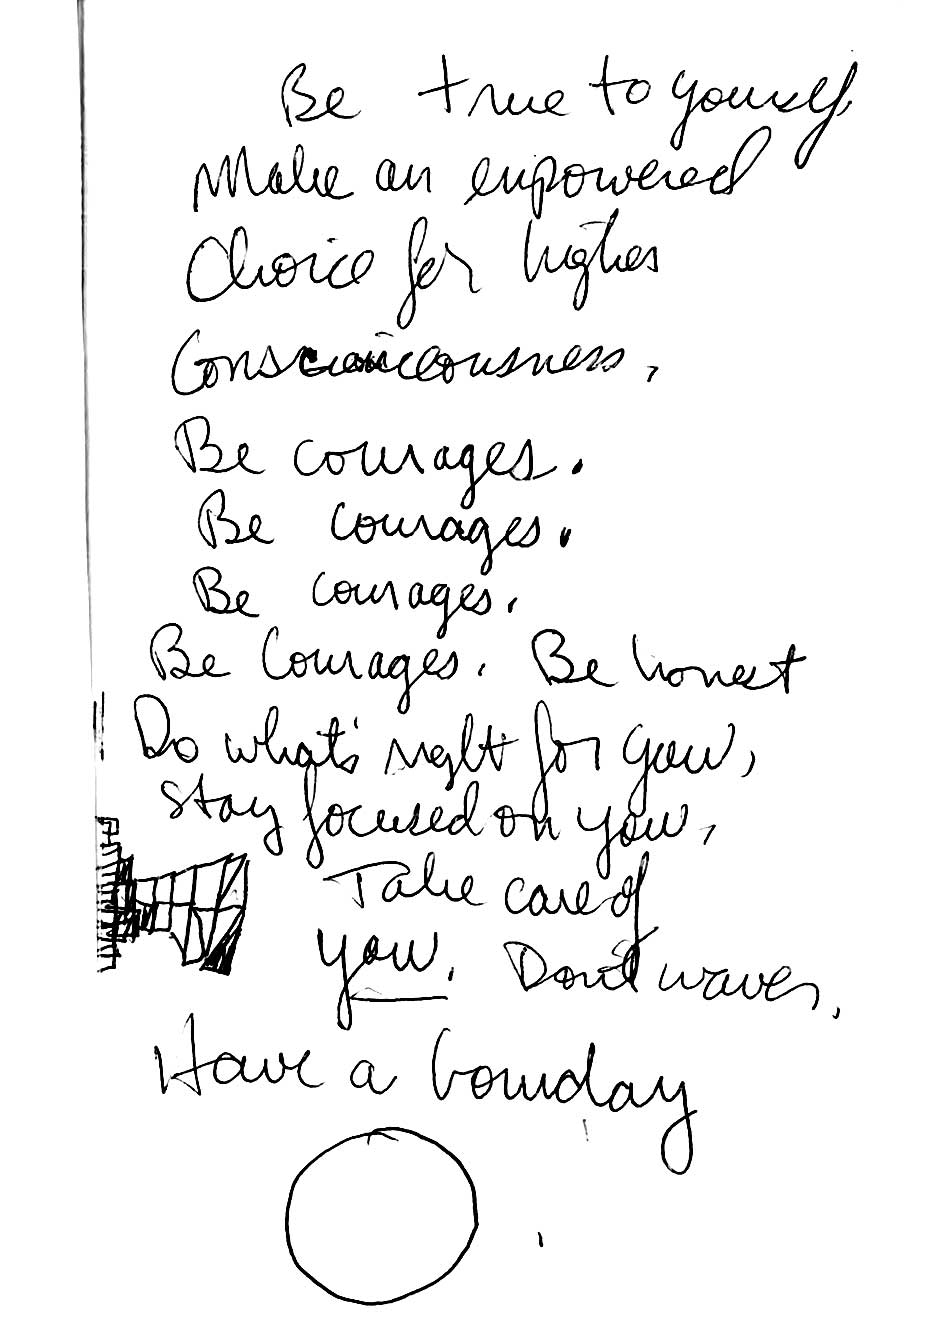 Be true to yourself
Make an empowered
Choice for higher
Consciousness,
Be courages.
Be courages.
Be courages.
Be Courages. Be honest
Do what's right for you,
Stay focused on you,
Take care of
you. Don't waver.
Have a bounday